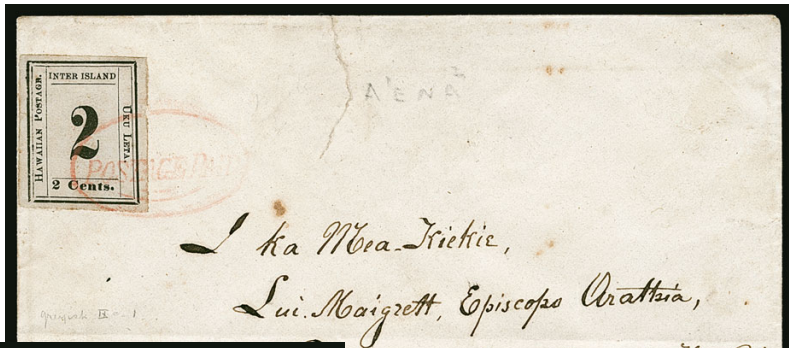 INTER ISLAND
HAWAIIAN POSTAGE.
2
UKU LETA.
2 Cents.
POSTAGE PAID
AENA
I ka Mea-Kiekie,
Lui. Maigrett, Episcopo Arathia,